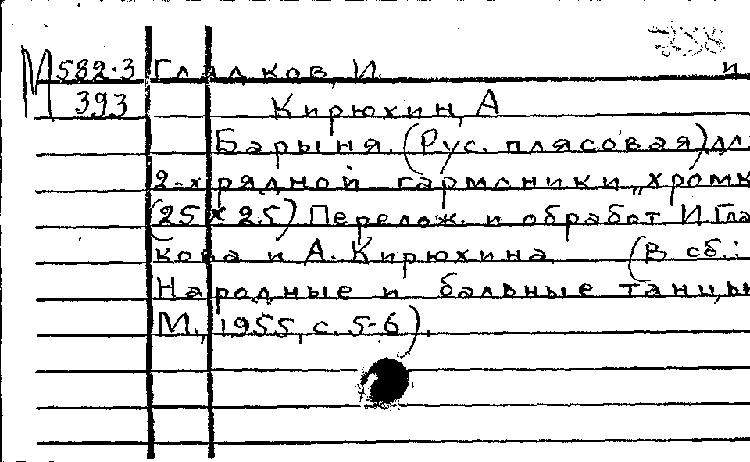 358
М 582.3 Гладков, И. и
393 Кирюхин, А
Барыня. (Рус. плясовая) дл
2-х рядной гармоники „хромк
(25 х 25) Перелож. и обработ И. Гла
кова и А. Кирюхина (В сб.:
Народные и бальные танцы
М., 1955, с. 5-6).